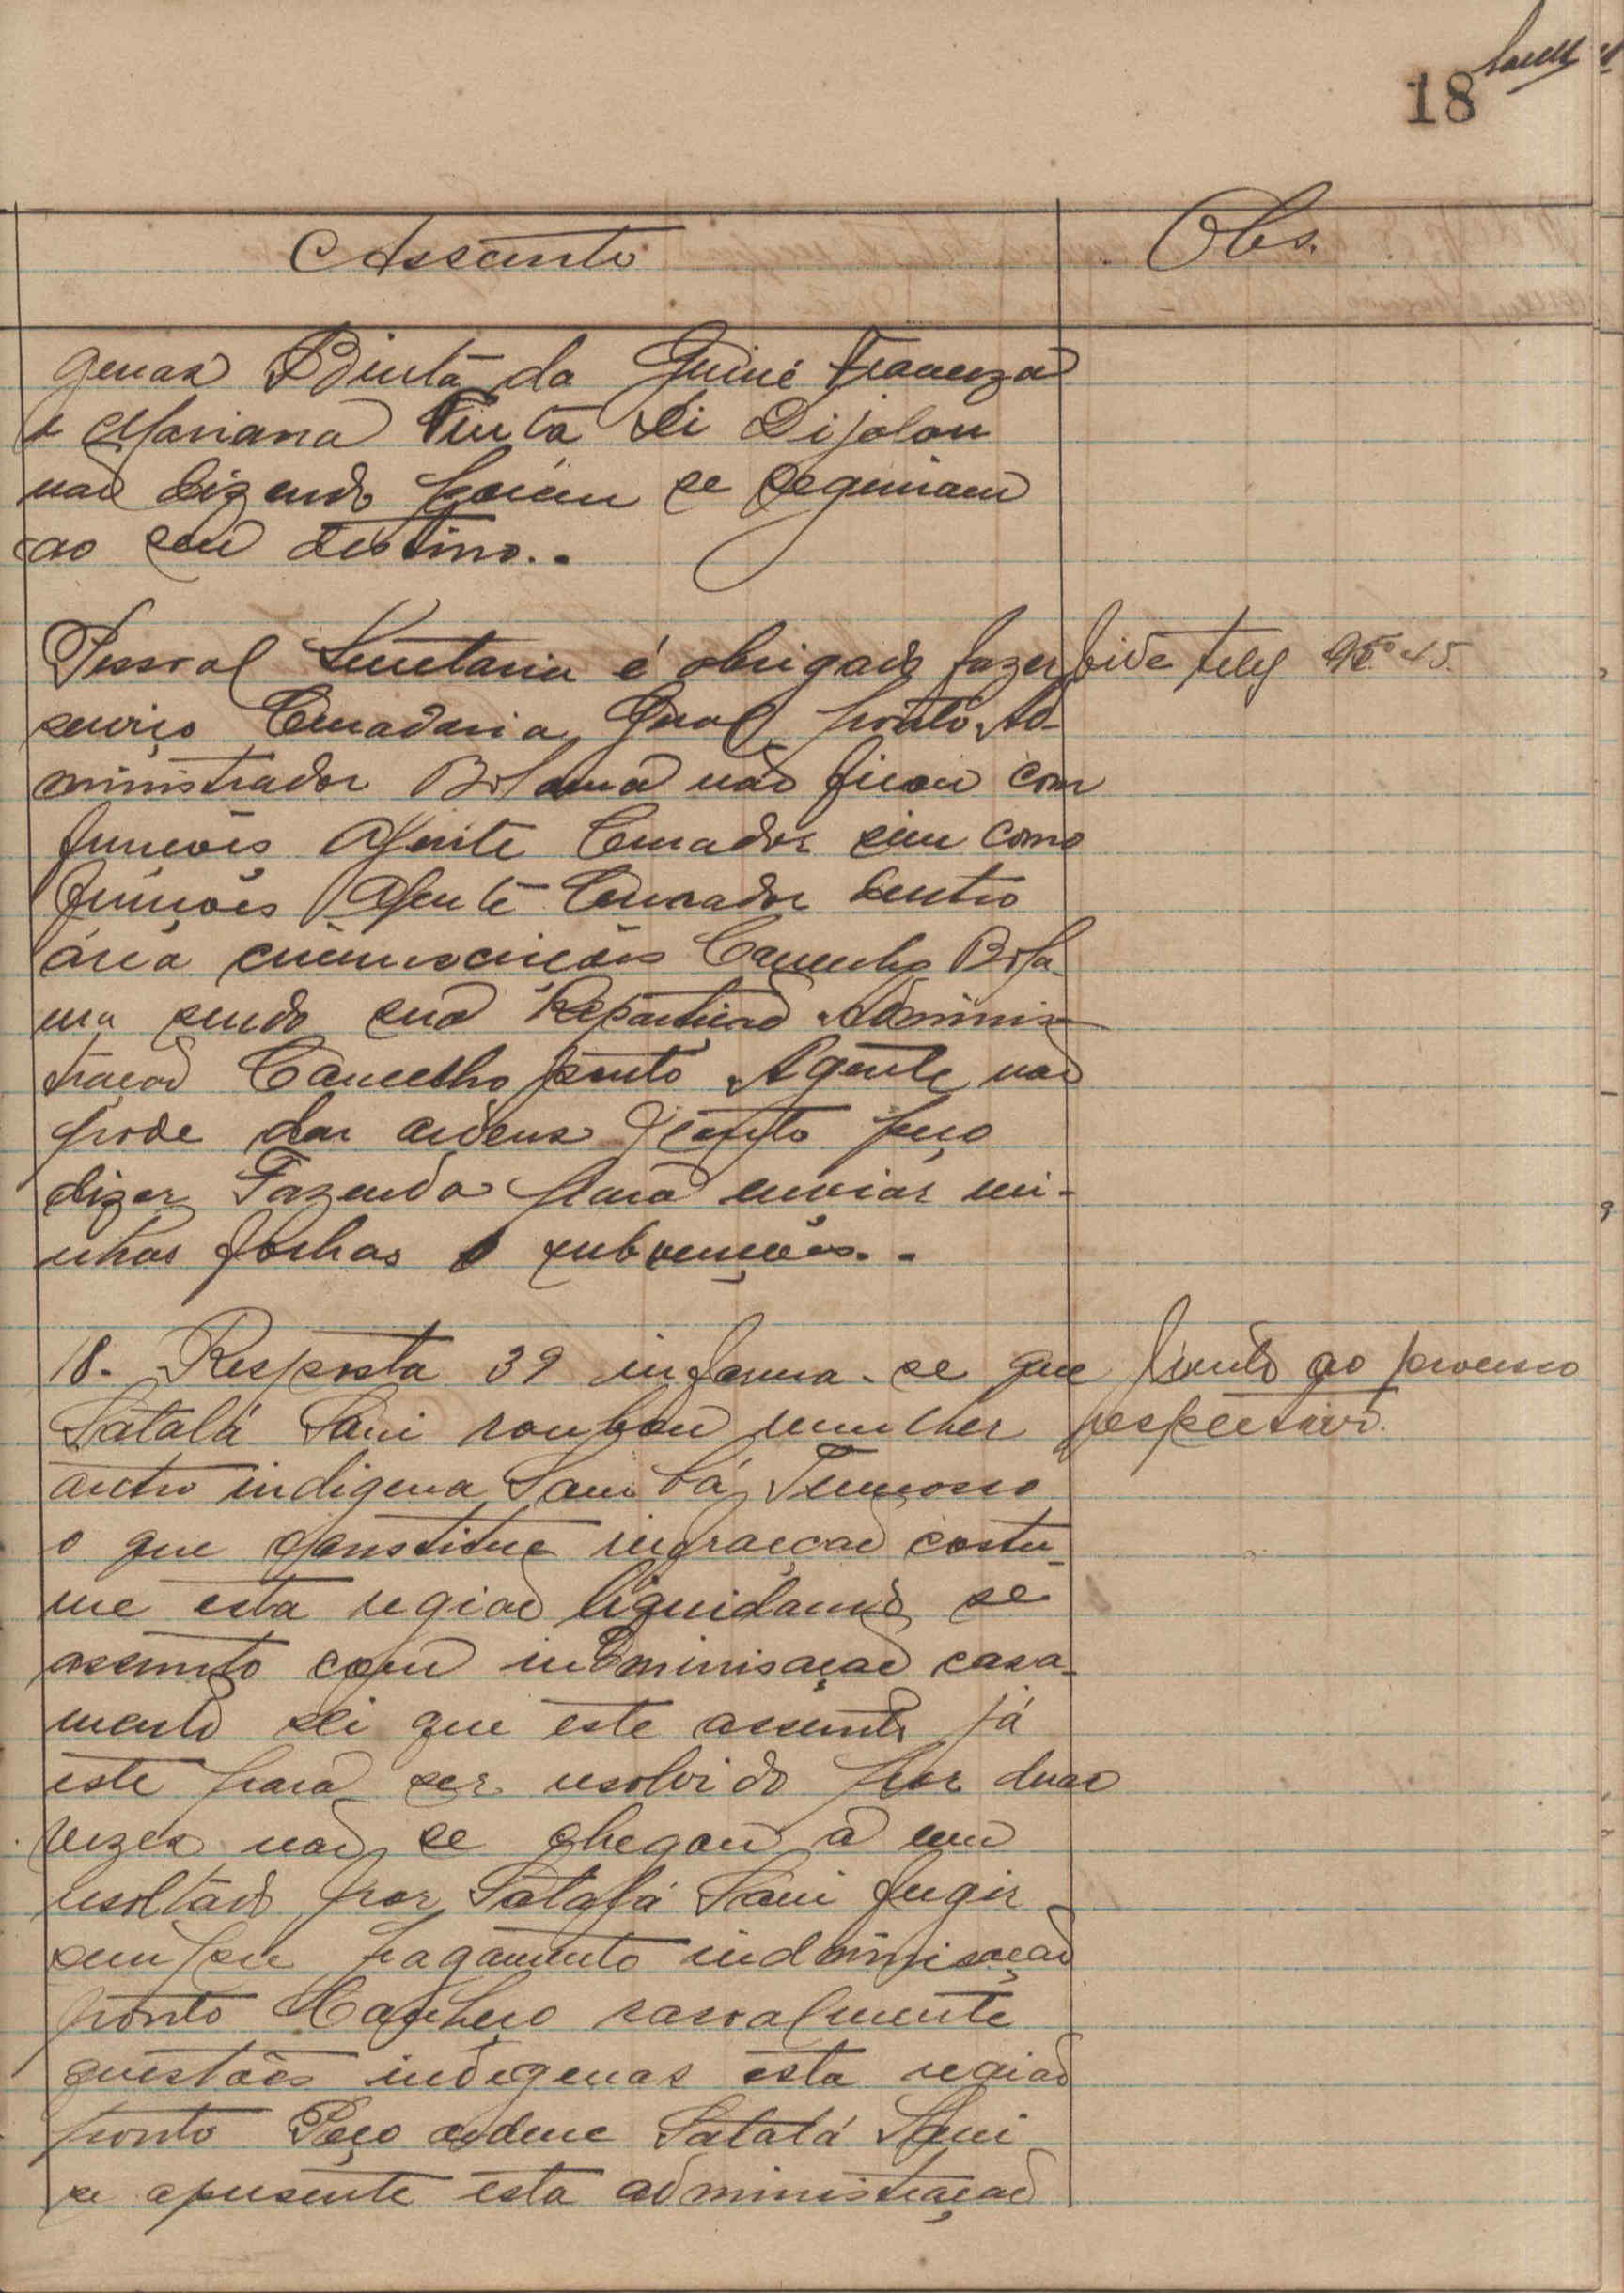 18
Assunto
Obs.
genas Binta da Guiné Franceza
e Mariana Binta de Dijolou
não dizendo porém se seguiram
ao seu destino..
Pessoal Secretaria é obrigado fazer
serviço Curadoria Geral ponto Ad-
ministrador Bolama não ficou com
funções Agente Curador sim como
funções Agente Curador dentro
área circunscrições Concelho Bola-
ma sendo sua Repartição Adminis-
tração Concelho ponto Agente não
pode dar ordens ponto peço
dizer Fazenda para enviar mi-
nhas folhas e subvenções..
vide teleg 45.
18. Resposta 39 informa-se que
Satalá Sani roubou mulher
outro indigena Sambá
o que constitue infracção costu-
me esta região liquidando se
assunto com indminisação casa-
mento sei que este assunto já
este para ser resolvido por duas
vezes não se chegou a um
resoltado por Satalá Sani fugir
sempre pagamento indminisação
ponto Conheço
questões indigenas esta região
ponto Peço ordene Satalá Sani
se apresente esta administração
Junto ao processo
respectivo.